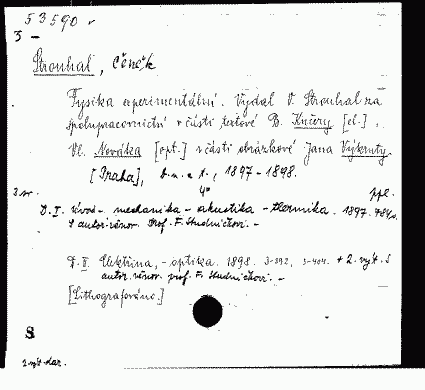 53590
3 -
Strouhal, Čeněk
Fysika experimentální. Vydal V. Strouhal za
spolupracovnictví v části textové B. Kučery [el.],
Vl. Nováka [opt.] v části obrázkové Jana Vykruty,
[Praha], b.n. a t., 1897-1898.
4°
3 sv. ppl.
D.I. Úvod - mechanika - akustika - thermika. 1897. 484 s.
S autor. věnov. Prof. F. Studničkovi. -
D.II. Elektřina, - optika. 1898. 3-392, 3-404. + 2. výt. s
autor. věnov. prof. F. Studničkovi. -
[Lithografováno.]
S
2 výt. dar.